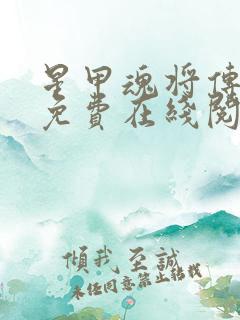 星甲魂将傳
免費在綫閱
傾我至誠
未任同意禁止轉載